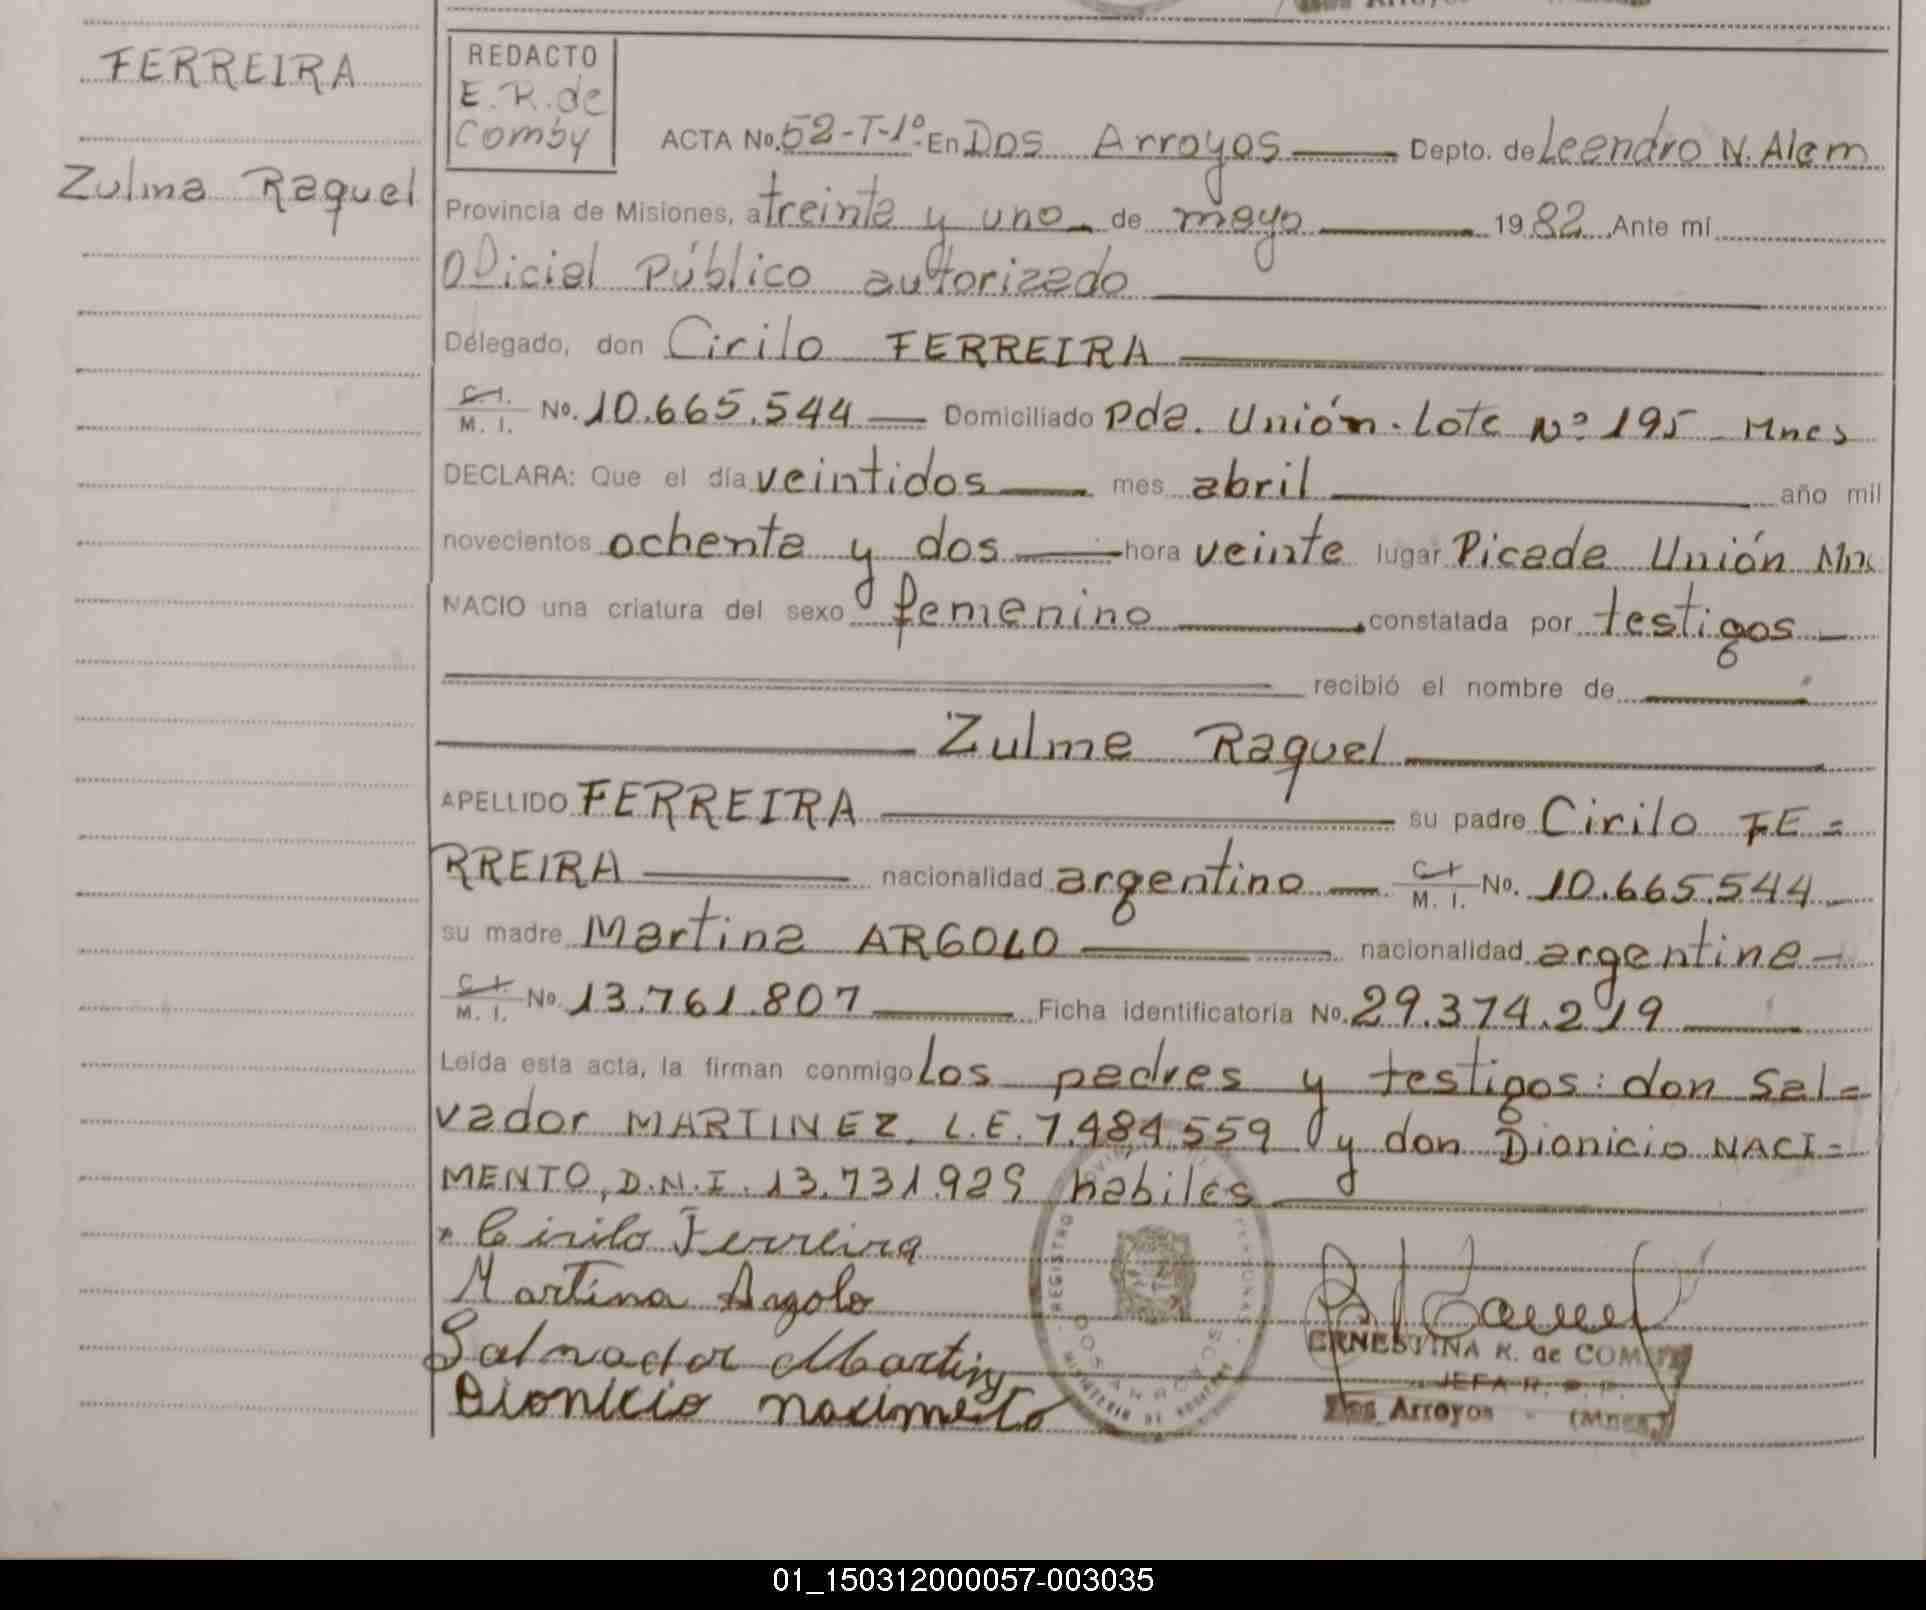 FERREIRA
Zulma Raquel
REDACTO
E.R. de
Comby
ACTA No. 52-T-1º. En Dos Arroyos Depto. de Leandro N. Alem
Provincia de Misiones, a treinta y uno de mayo 1982 Ante mí
Oficial Público autorizado
Delegado, don Cirilo FERREIRA
C.I.
M. I. No. 10.665.544 Domiciliado Pda. Unión. Lote Nº 195 - Mnes
DECLARA: Que el día veintidos mes abril año mil
novecientos ochenta y dos hora veinte lugar Picada Unión Mns
NACIO una criatura del sexo femenino constatada por testigos
recibió el nombre de
Zulma Raquel
APELLIDO FERREIRA su padre Cirilo FE=
RREIRA nacionalidad argentino C.I.
M. I. No. 10.665.544
su madre Martina ARGOLO nacionalidad argentina
C.I.
M. I. No. 13.761.807 Ficha identificatoria No. 29.374.219
Leída esta acta, la firman conmigo los padres y testigos: don Sal=
vador MARTINEZ, L.E. 7.484.559 y don Dionicio NACI=
MENTO, D.N.I. 13.731.929 hábiles
Cirilo Ferreira
Martina Argolo
Salvador Martinz
Dionicio nacimento
REGISTRO PERSONAS
DOS ARROYOS
MINISTERIO DE GOBIERNO
ERNESTINA R. de COMBY
JEFA R. P. P.
Dos Arroyos - (Mnes.)
01_150312000057-003035